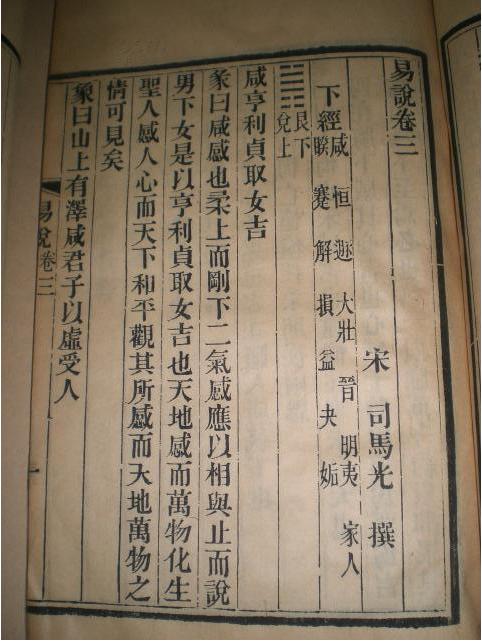 易說卷三
宋 司馬光 撰
下經咸 恒 遯 大壯 晉 明夷 家人
睽 蹇 解 損 益 夬 姤
艮下
兌上
咸亨利貞取女吉
彖曰咸感也柔上而剛下二氣感應以相與止而說
男下女是以亨利貞取女吉也天地感而萬物化生
聖人感人心而天下和平觀其所感而天地萬物之
情可見矣
象曰山上有澤咸君子以虛受人
易說卷三
一